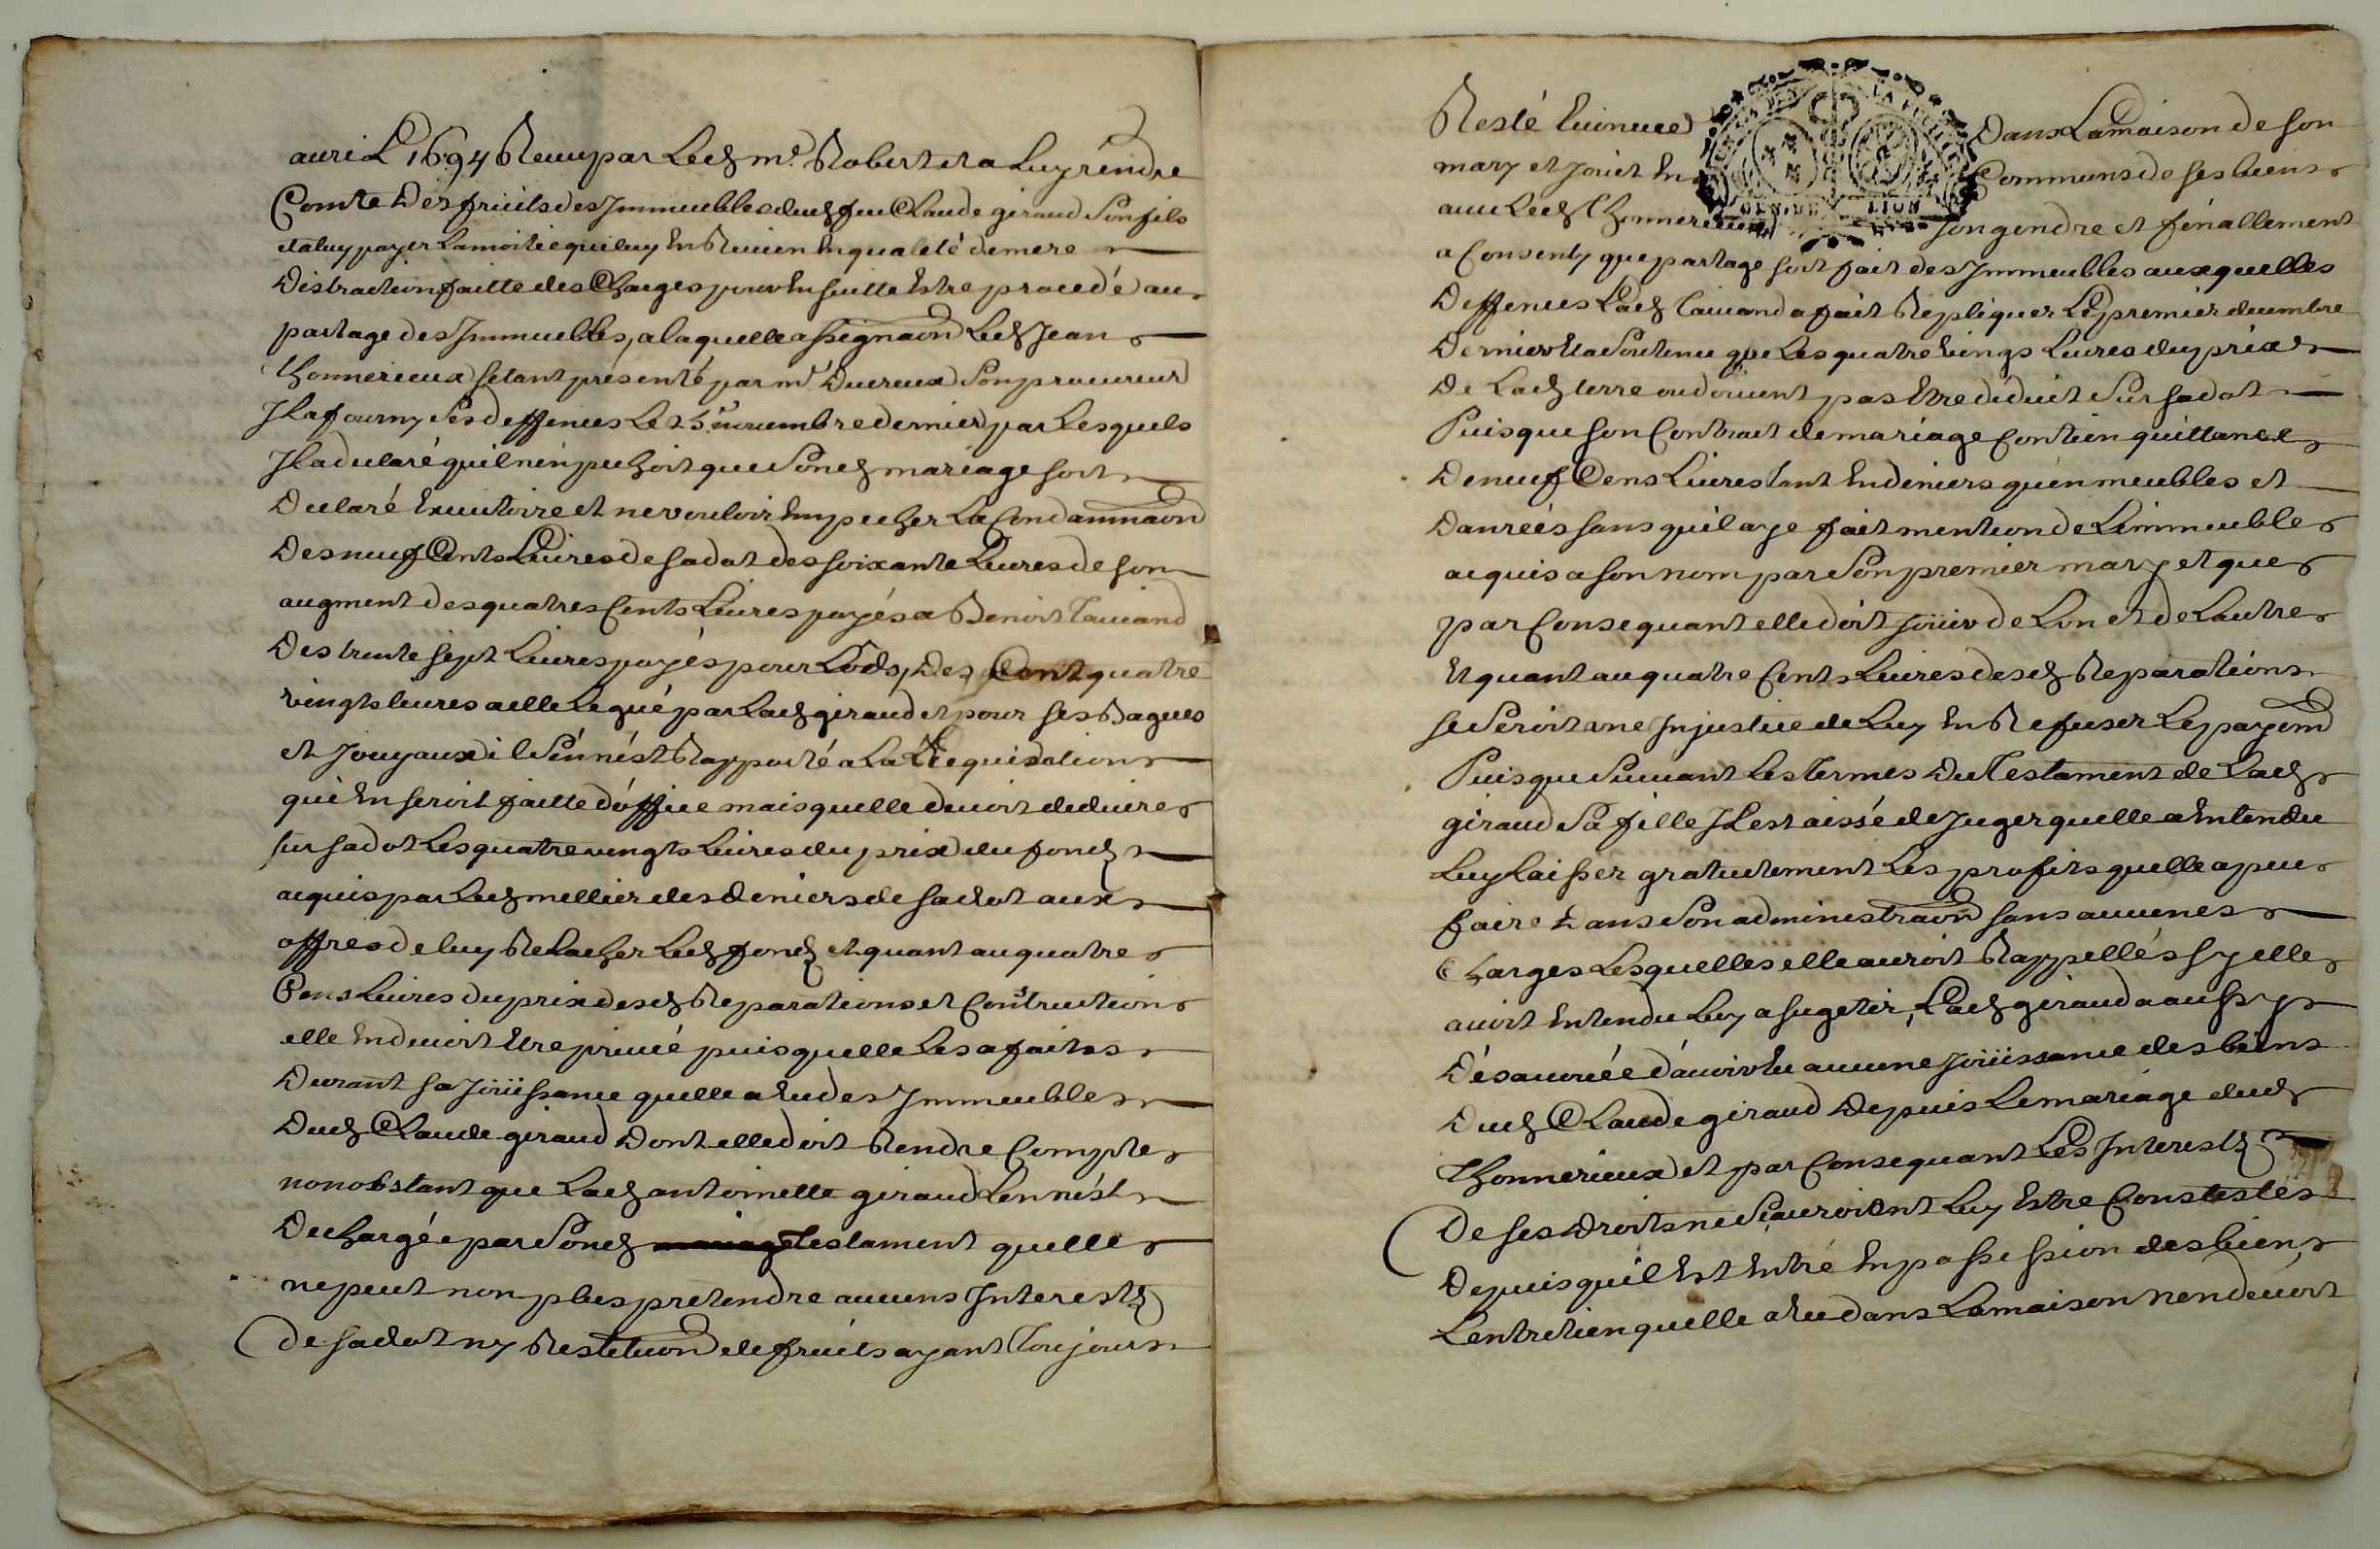 auril 1694 Receu par Led mᵉ Robert et a Luy rendre
Comte Des fruits des Jmmeubles dud feu Claude giraud Son fils
et a luy payer La moitie qui luy En Reuien En qualité de mere
Distraction faitte des Charges pour En suitte Estre procedé au
partage des Jmmeubles, a laquelle assignaon Led Jean
Thonnerieux sétant présenté par mᵉ Ducreux Son procureur
Jl a fourny Ses deffences Le 25ᵉ nouembre dernier par Lesquels
Jl a declaré quil nén pechoit que Son d mariage soit
Declaré Executoire et ne vouloir Empecher La Condamnaon
Des neuf Cents Liures de sa dot des soixante Liures de son
augment des quatres Cents Liures payés a Benoit Tauiand
Des trente sept Liures payés pour Lods, Des Cent quatre
vingts liures a elle Legué par Lad giraud et pour ses Bagues
et Jouyaux il Sén nést Rapporté a La Liequidation
qui En seroit faitte dóffice mais quelle deuoit deduire
sur sa dot Les quatre vingts Liures du prix du fond
acquis par Led mellier des deniers de sa dot aux
offres de luy Relacher Led fond et quant au quatre
Cens Liures du prix des d Reparations et Constructions
elle En deuoit Etre priuée puis quelle Les a faites
Durant sa Joüissance quelle a Eu des Jmmeubles
Dud Claude giraud Dont elle doit Rendre Compte
nonobstant que Lad antoinette giraud Len nést
Dechargée par Son d Testament quelle
ne peut non plus pretendre aucuns Jnterests
de sa dot ny Restituon de fruits ayant Toujours
Resté Dans La maison de son
mary et Jouit En Commun de ses biens
auec Led Thonnerieux son gendre et finallement
a Consenty que partage soit fait des Jmmeubles auxquelles
Deffences Lad Tauiand a fait Repliquer Le premier decembre
Dernier Et a Soutenu que Les quatre vings Liures du prix
De Lad terre ne doiuent pas Etre déduit Sur sa dot
Puis que son Contract de mariage Contien quittance
De neuf Cens Liures tant En deniers quén meubles et
Danrées sans quil aye fait mention de Limmeuble
acquis a son nom par Son premier mary et que
par Consequant elle doit Joüir de Lun et de Lautre
Et quant au quatre Cents Liures des d Reparations
se Seroit une Jnjustice de Luy En Refuser Le payemt
Puis que Suiuant Les termes Du Testament de Lad
giraud Sa fille Jl est aissé de Juger quelle a Entendu
Luy Laisser gratuitement Les profits quelle a peu
faire Dans Son administraon sans aucunes
Charges Les quelles elle auroit Rappellés sy elle
auoit Entendu Luy a sugetir, Lad giraud a aussy
Désauouée dáuoir Eu aucune joüissance des biens
Dud Claude giraud Depuis Le mariage dud
Thonnerieux et par Consequant Les Jnterests
De ses Droits ne Sçauroient Luy Estre Constestés
Depuis quil Est Entré En possession des biens
Lentretien quelle a Eu dans La maison nen deuoit